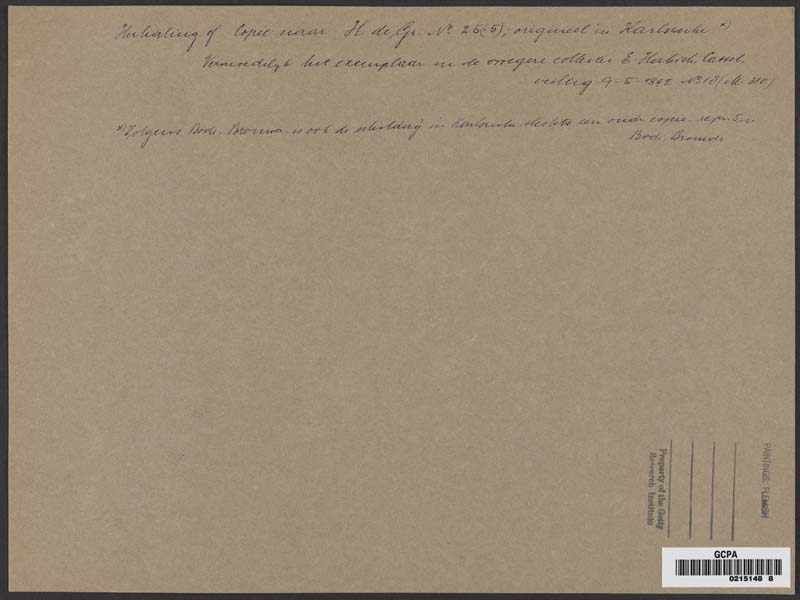 Herhaling of Copie naar H de Gr. No 25(5); origineel in Karlsruhe *)
Vermoedelijk het exemplaar in de vroegere collectie E. Habich, Cassel,
veiling 9-5-1892 No 18 (M. 310)
*) Volgens Bode, Brouwer is ook de schilderij in Karlsruhe slechts een oude copie. repr. in
Bode, Brouwer
PAINTINGS: FLEMISH
Property of the Getty
Research Institute
GCPA
0215148 8